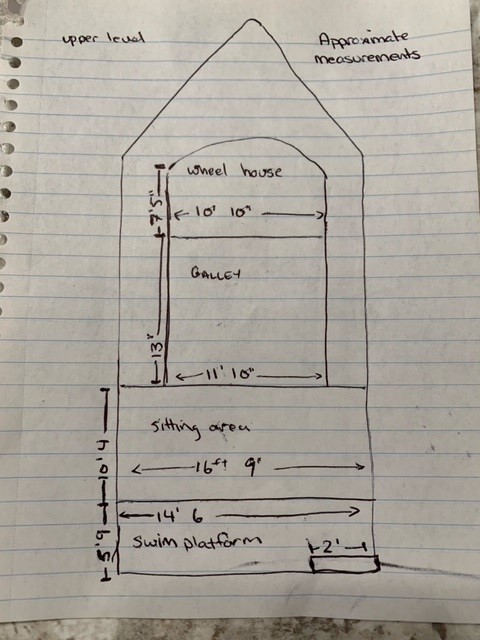 upper level
Approximate
measurements
wheel house
7'5"
10' 10"
GALLEY
13"
11' 10"
sitting area
10'4
16ft 9"
14' 6
swim platform
2'
5'9